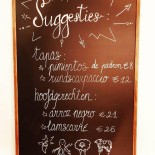 Suggesties:
tapas:
pimientos de padron €8
rundscarpaccio €12
hoofdgerechten:
arroz negro €21
lamscarré €26